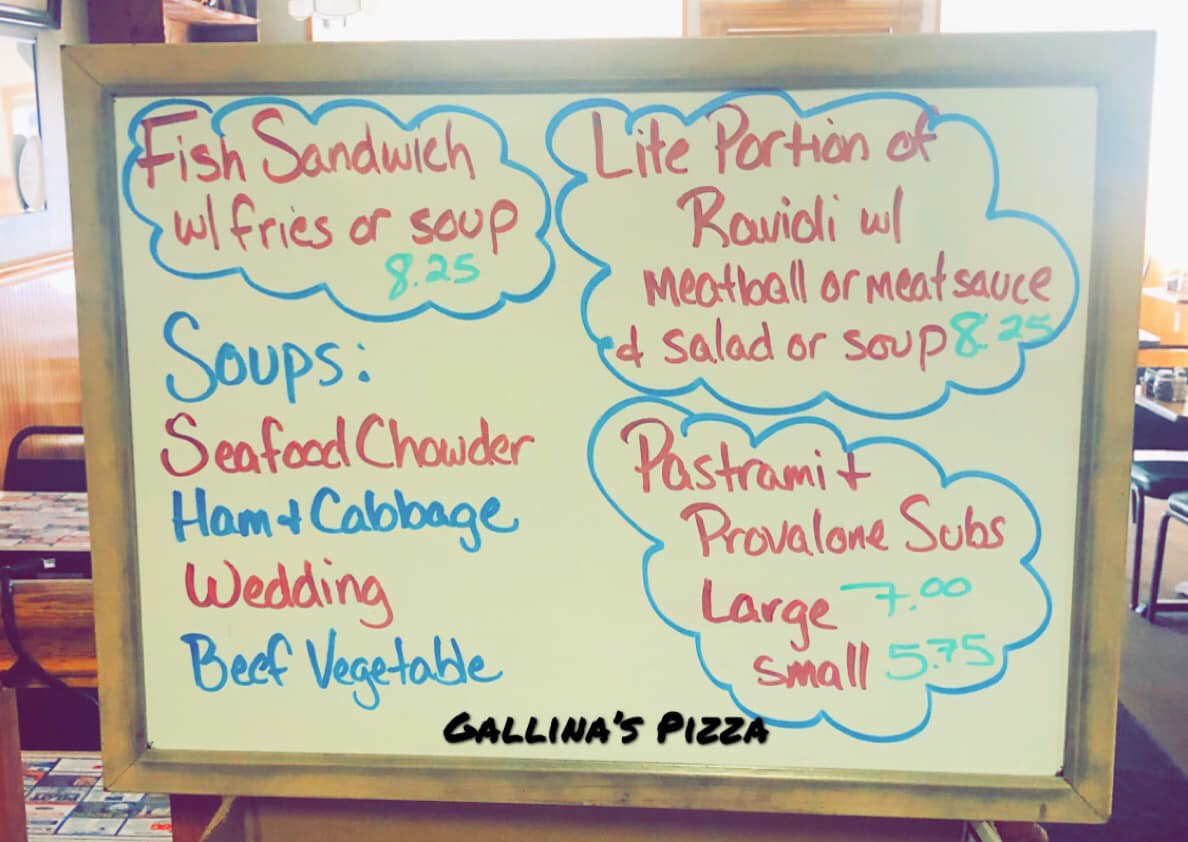 Fish Sandwich
w/ fries or soup
8.25
Soups:
Seafood Chowder
Ham + Cabbage
Wedding
Beef Vegetable
Lite Portion of
Ravioli w/
meatball or meatsauce
+ salad or soup 8.25
Pastrami +
Provalone Subs
Large 7.00
small 5.75
Gallina's Pizza